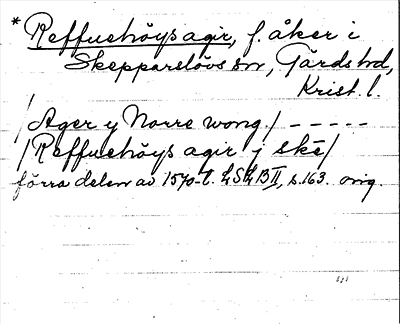 * Reffuehöys agir, f. åker i
Skepparslövs sn, Gärds hd,
Krist. l.
/Ager y Norre wong/ - - - - -
/Reffuehöys agir j skē/
förra delen av 1570-t. LSLB II, s. 163. orig.